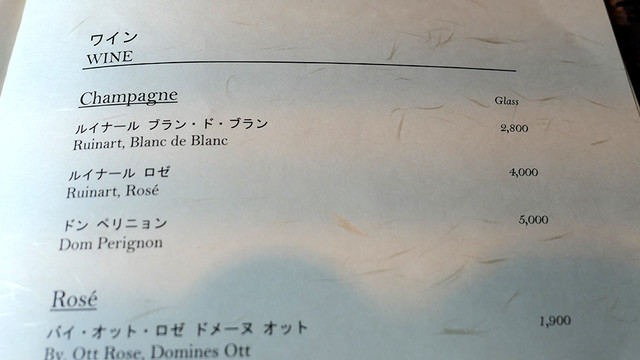 ワイン
WINE
Champagne Glass
ルイナール ブラン・ド・ブラン 2,800
Ruinart, Blanc de Blanc
ルイナール ロゼ 4,000
Ruinart, Rosé
ドン ペリニョン 5,000
Dom Perignon
Rosé
バイ・オット・ロゼ ドメーヌ オット 1,900
By. Ott Rose, Domines Ott